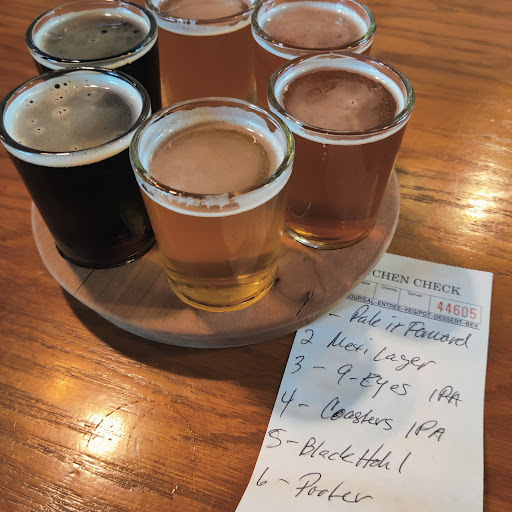 CHEN CHECK
44605
SOUP/SAL-ENTREE-VEG/POT-DESSERT-BEV
- Pale it Forward
2 Mexi Lager
3 - 9-Eyes IPA
4 - Coasters IPA
5 - Black Hohl
6 - Porter